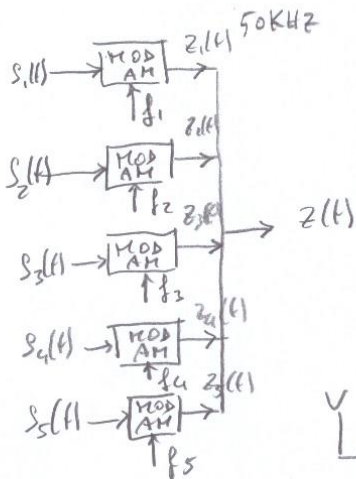 S1(t) MOD AM Z1(t) 50KHZ
f1
S2(t) MOD AM Z2(t)
f2
Z3(t)
S3(t) MOD AM Z(t)
f3
S4(t) MOD AM Z4(t)
f4 Z5(t)
S5(t) MOD AM
f5